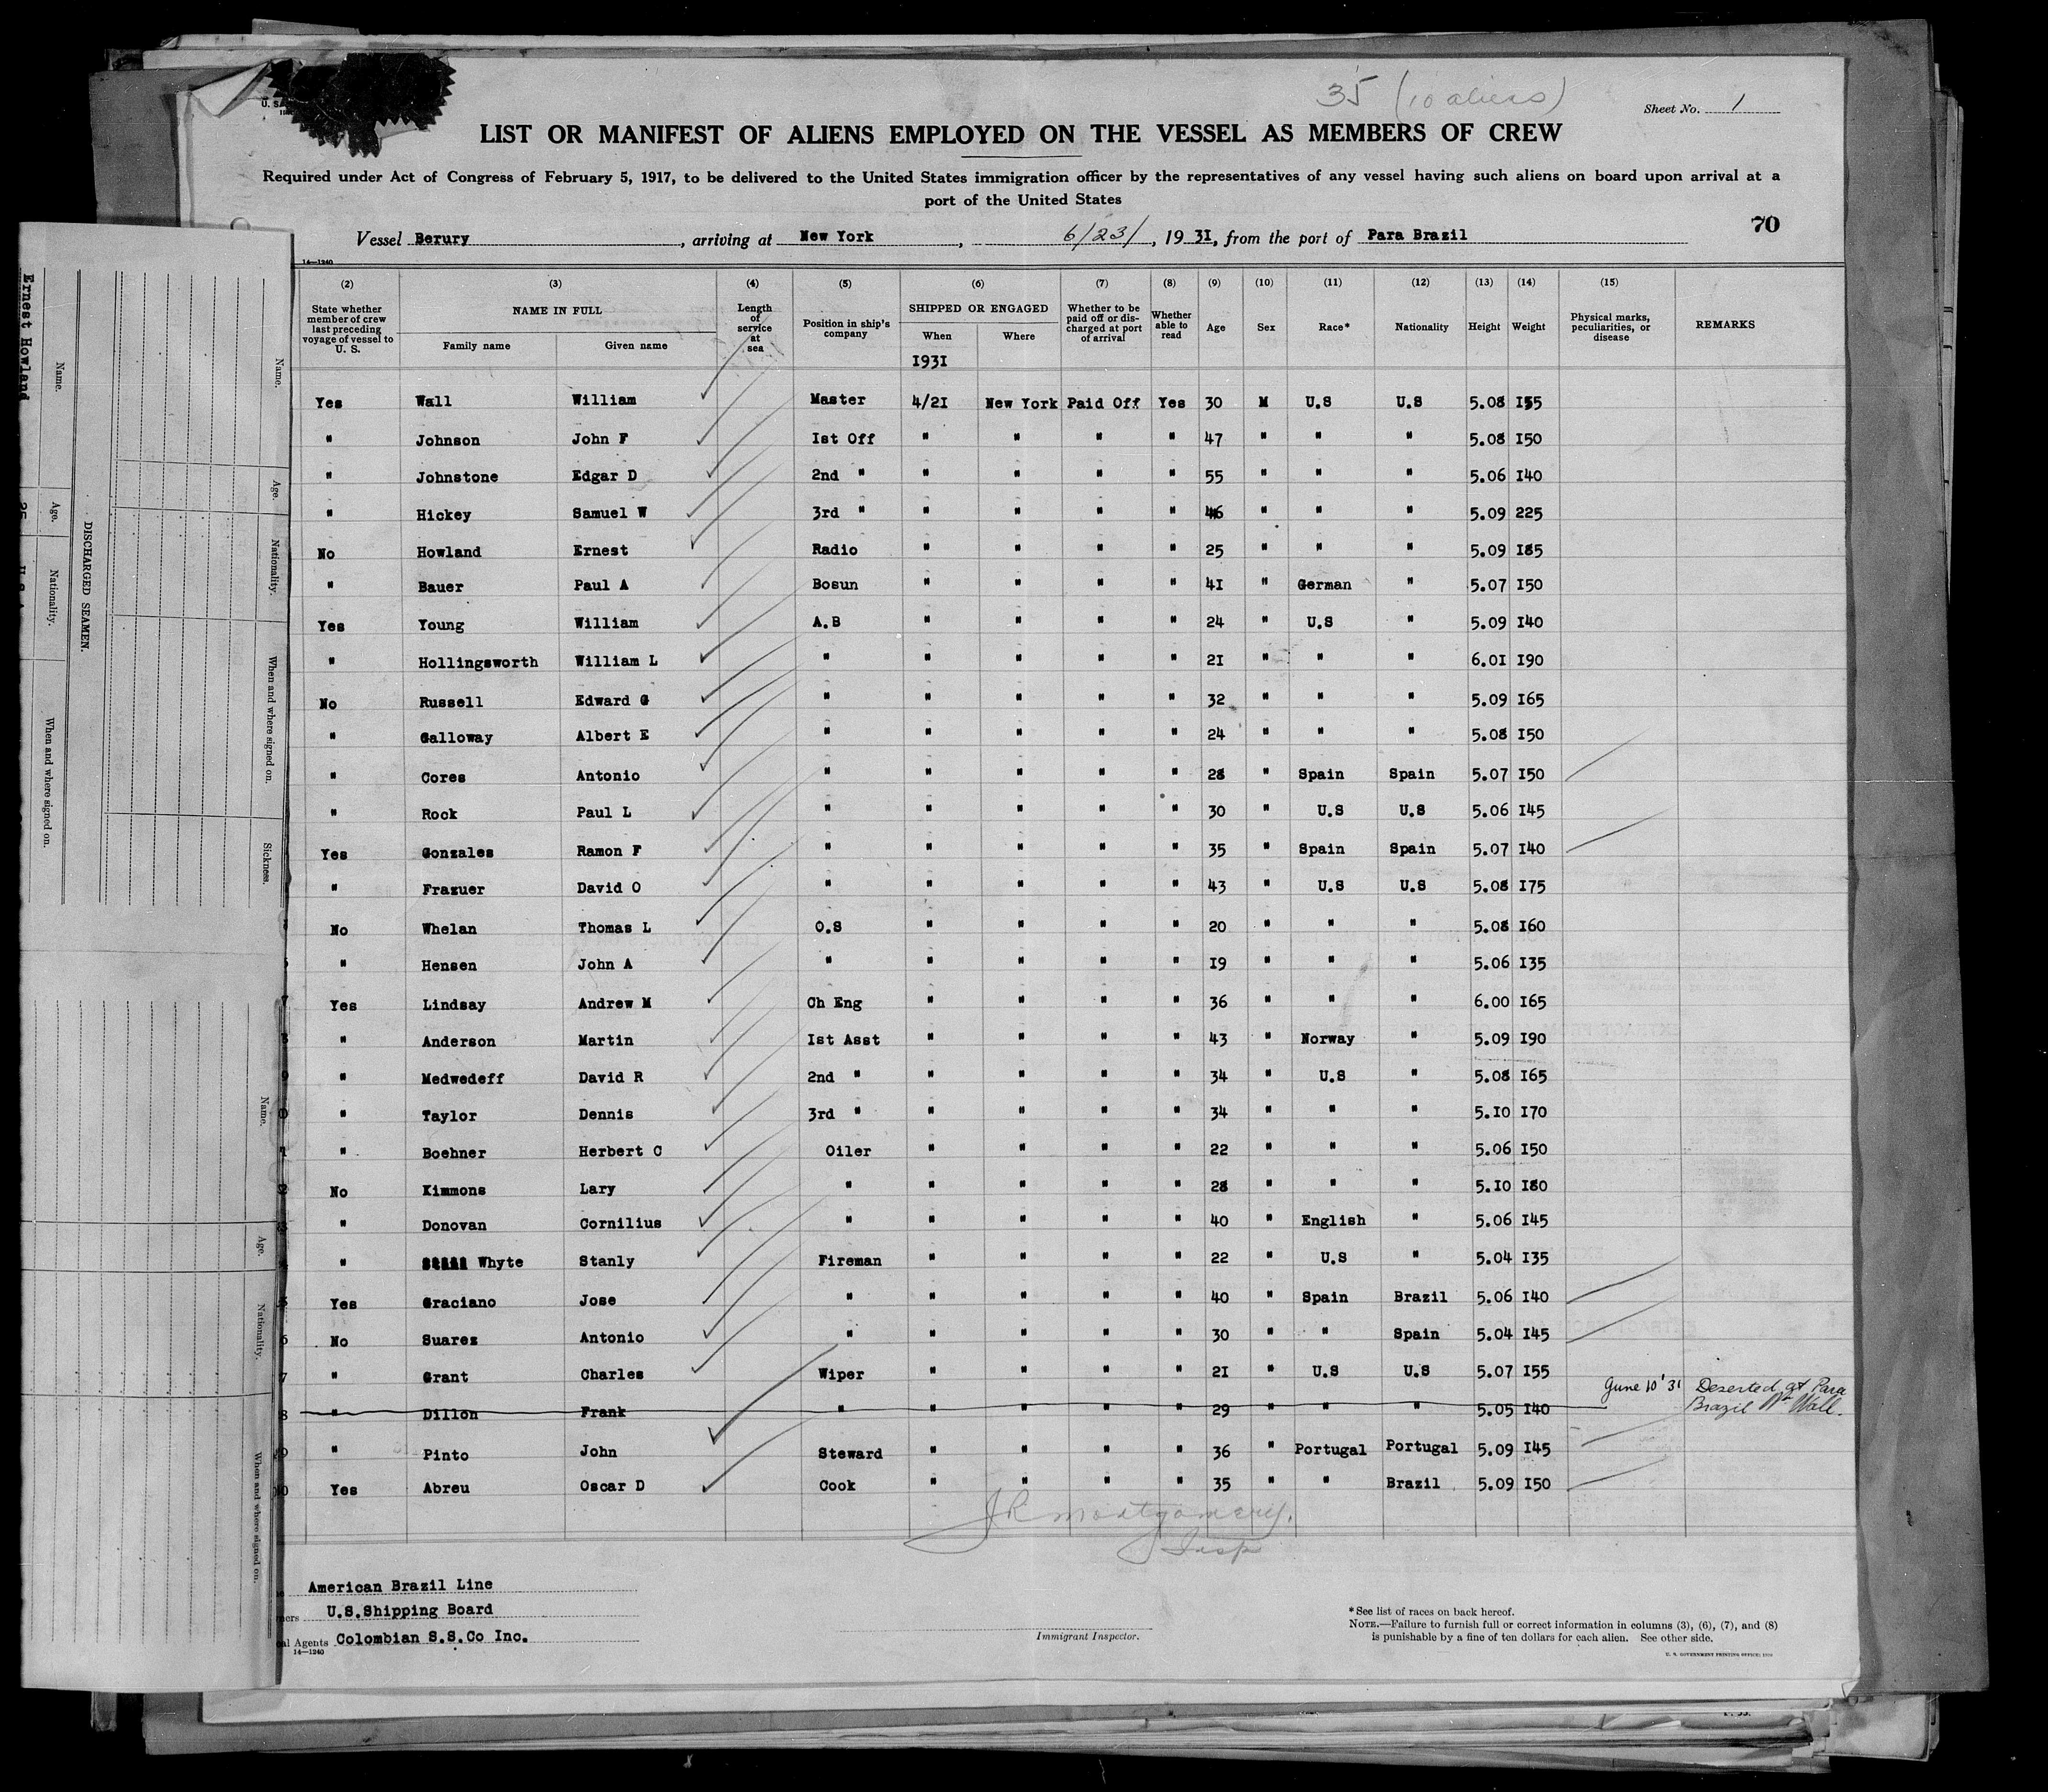 35 (10 aliens)
U. S.
Sheet No. 1
LIST OR MANIFEST OF ALIENS EMPLOYED ON THE VESSEL AS MEMBERS OF CREW
Required under Act of Congress of February 5, 1917, to be delivered to the United States immigration officer by the representatives of any vessel having such aliens on board upon arrival at a
port of the United States
70
Vessel Berury, arriving at New York, 6/23/, 1931, from the port of Para Brazil
14—1240
(2) (3) (4) (5) (6) (7) (8) (9) (10) (11) (12) (13) (14) (15)
State whether member of crew last preceding voyage of vessel to U. S. NAME IN FULL Family name Given name Length of service at sea Position in ship's company SHIPPED OR ENGAGED When Where Whether to be paid off or discharged at port of arrival Whether able to read Age Sex Race* Nationality Height Weight Physical marks, peculiarities, or disease REMARKS
1931
Yes Wall William Master 4/21 New York Paid Off Yes 30 M U.S U.S 5.08 155
" Johnson John F 1st Off " " " " 47 " " " 5.08 150
" Johnstone Edgar D 2nd " " " " " 55 " " " 5.06 140
" Hickey Samuel W 3rd " " " " " 46 " " " 5.09 225
No Howland Ernest Radio " " " " 25 " " " 5.09 185
" Bauer Paul A Bosun " " " " 41 " German " 5.07 150
Yes Young William A.B " " " " 24 " U.S " 5.09 140
" Hollingsworth William L " " " " " 21 " " " 6.01 190
No Russell Edward G " " " " " 32 " " " 5.09 165
" Galloway Albert E " " " " " 24 " " " 5.08 150
" Cores Antonio " " " " " 28 " Spain Spain 5.07 150
" Rock Paul L " " " " " 30 " U.S U.S 5.06 145
Yes Gonzales Ramon F " " " " " 35 " Spain Spain 5.07 140
" Frazuer David O " " " " " 43 " U.S U.S 5.08 175
No Whelan Thomas L O.S " " " " 20 " " " 5.08 160
" Hensen John A " " " " " 19 " " " 5.06 135
Yes Lindsay Andrew M Ch Eng " " " " 36 " " " 6.00 165
" Anderson Martin 1st Asst " " " " 43 " Norway " 5.09 190
" Medwedeff David R 2nd " " " " " 34 " U.S " 5.08 165
" Taylor Dennis 3rd " " " " " 34 " " " 5.10 170
" Boehner Herbert C Oiler " " " " 22 " " " 5.06 150
No Kimmons Lary " " " " " 28 " " " 5.10 180
" Donovan Cornilius " " " " " 40 " English " 5.06 145
" Whyte Stanly Fireman " " " " 22 " U.S " 5.04 135
Yes Graciano Jose " " " " " 40 " Spain Brazil 5.06 140
No Suares Antonio " " " " " 30 " " Spain 5.04 145
" Grant Charles Wiper " " " " 21 " U.S U.S 5.07 155
" Dillon Frank " " " " " 29 " " " 5.05 140 June 10' 31 Deserted at Para
Brazil Wm Wall.
" Pinto John Steward " " " " 36 " Portugal Portugal 5.09 145
Yes Abreu Oscar D Cook " " " " 35 " " Brazil 5.09 150
J R Montgomery.
Insp
American Brazil Line
U.S.Shipping Board
Agents Colombian S.S.Co Inc.
14—1240
Immigrant Inspector.
*See list of races on back hereof.
NOTE.—Failure to furnish full or correct information in columns (3), (6), (7), and (8)
is punishable by a fine of ten dollars for each alien. See other side.
U. S. GOVERNMENT PRINTING OFFICE:
Ernest Howland 25
Name. Age. Nationality. When and where signed on.
DISCHARGED SEAMEN.
Name. Age. Nationality. When and where signed on. Sickness.
Name. Age. Nationality. When and where signed on.